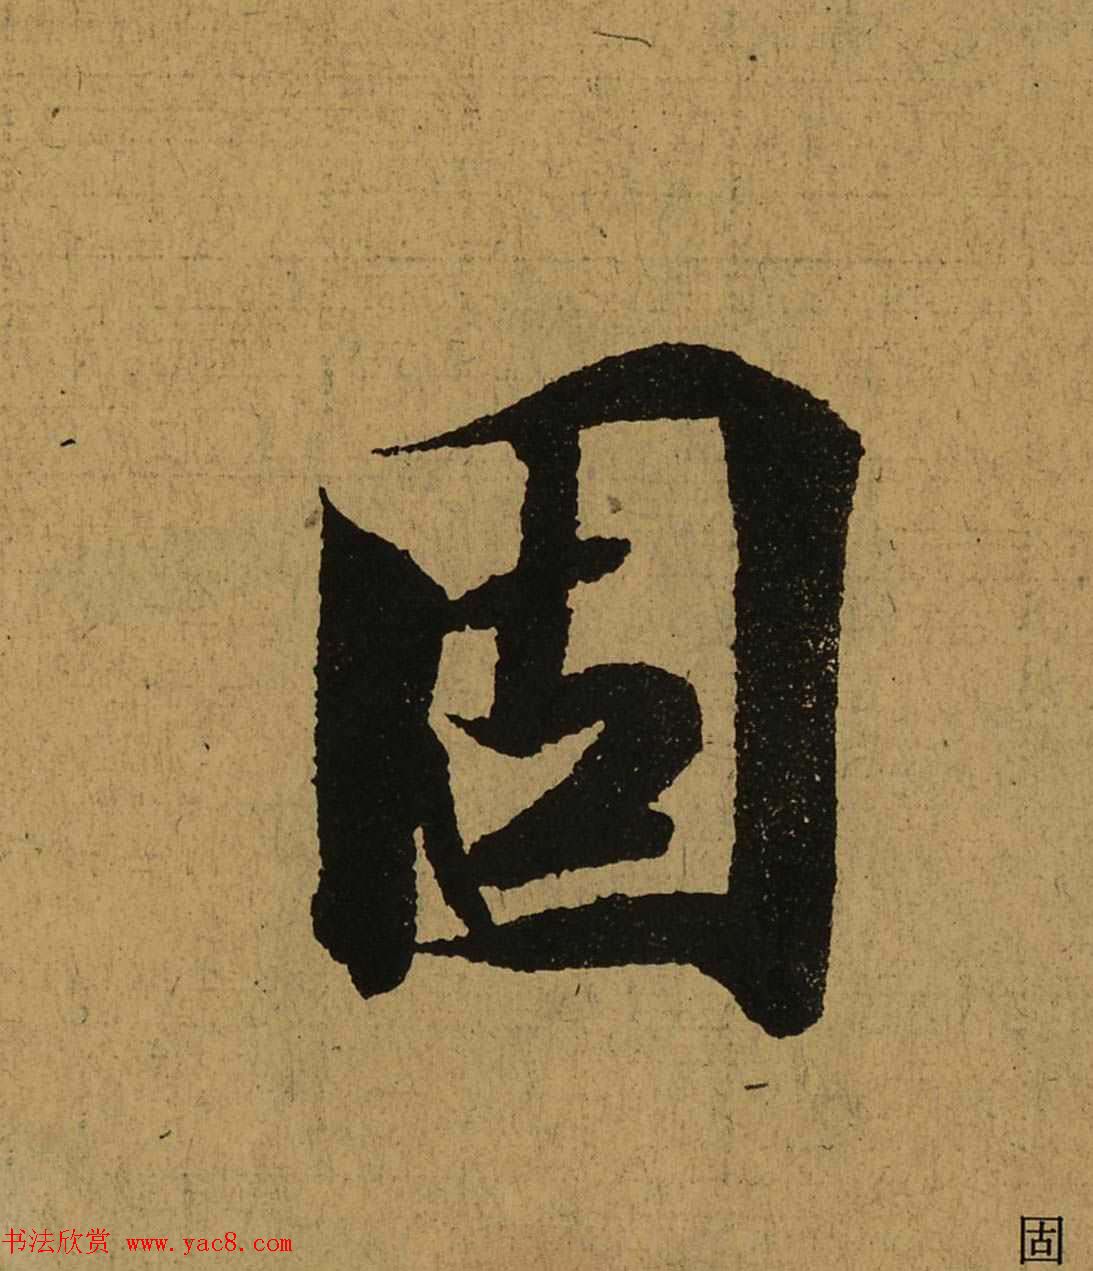 固
书法欣赏 www.yac8.com
固